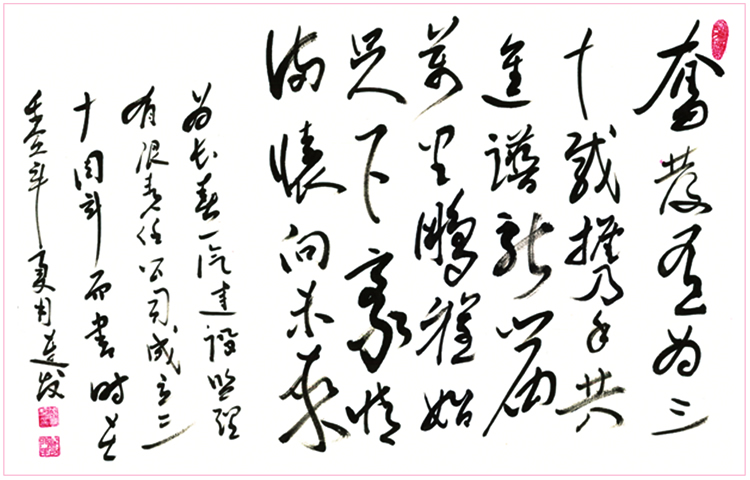 奮發有為三
十載携手共
進譜新篇
萬里鵬程始
足下豪情
滿懷向未來
為長春一汽建設監理
有限責任公司成立三
十周年而書 時在
壬寅年夏月